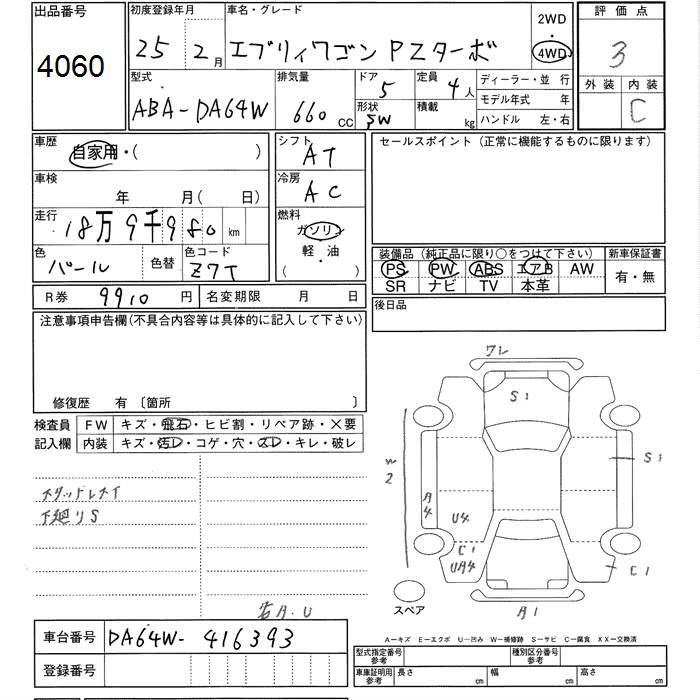 出品番号 初度登録年月 車名・グレード 2WD 評価点
4060 25年 2月 エブリィワゴン PZターボ 4WD 3
型式 排気量 ドア 定員 ディーラー・並 行 外装 内装
ABA-DA64W 660 CC 5 4人 モデル年式 年 C
形状 積載
SW kg ハンドル 左・右
車歴 シフト セールスポイント (正常に機能するものに限ります)
自家用・( ) AT
車検 冷房
年 月(日) AC
走行 燃料
18万9千980 km ガソリン
色 色替 色コード 軽・油 装備品 (純正品に限り○をつけて下さい) 新車保証書
パール Z7T ( ) PS PW ABS エアB AW 有・無
SR ナビ TV 本革
R券 9910 円 名変期限 月 日 後日品
注意事項申告欄(不具合内容等は具体的に記入して下さい)
修復歴 有 〔箇所 〕
検査員 FW キズ・飛石・ヒビ割・リペア跡・×要
記入欄 内装 キズ・汚レ・コゲ・穴・スレ・キレ・破レ
下廻りS
ワレ
S1
W2
S1
A4
U4
C1
UA4
C1
A1
スペア
右A.U
車台番号 DA64W-416393
登録番号
A-キズ E-エクボ U-凹み W-補修跡 S-サビ C-腐食 XX-交換済
型式指定番号 参考 種別区分番号 参考
車庫証明用 参考 長さ cm 幅 cm 高さ cm